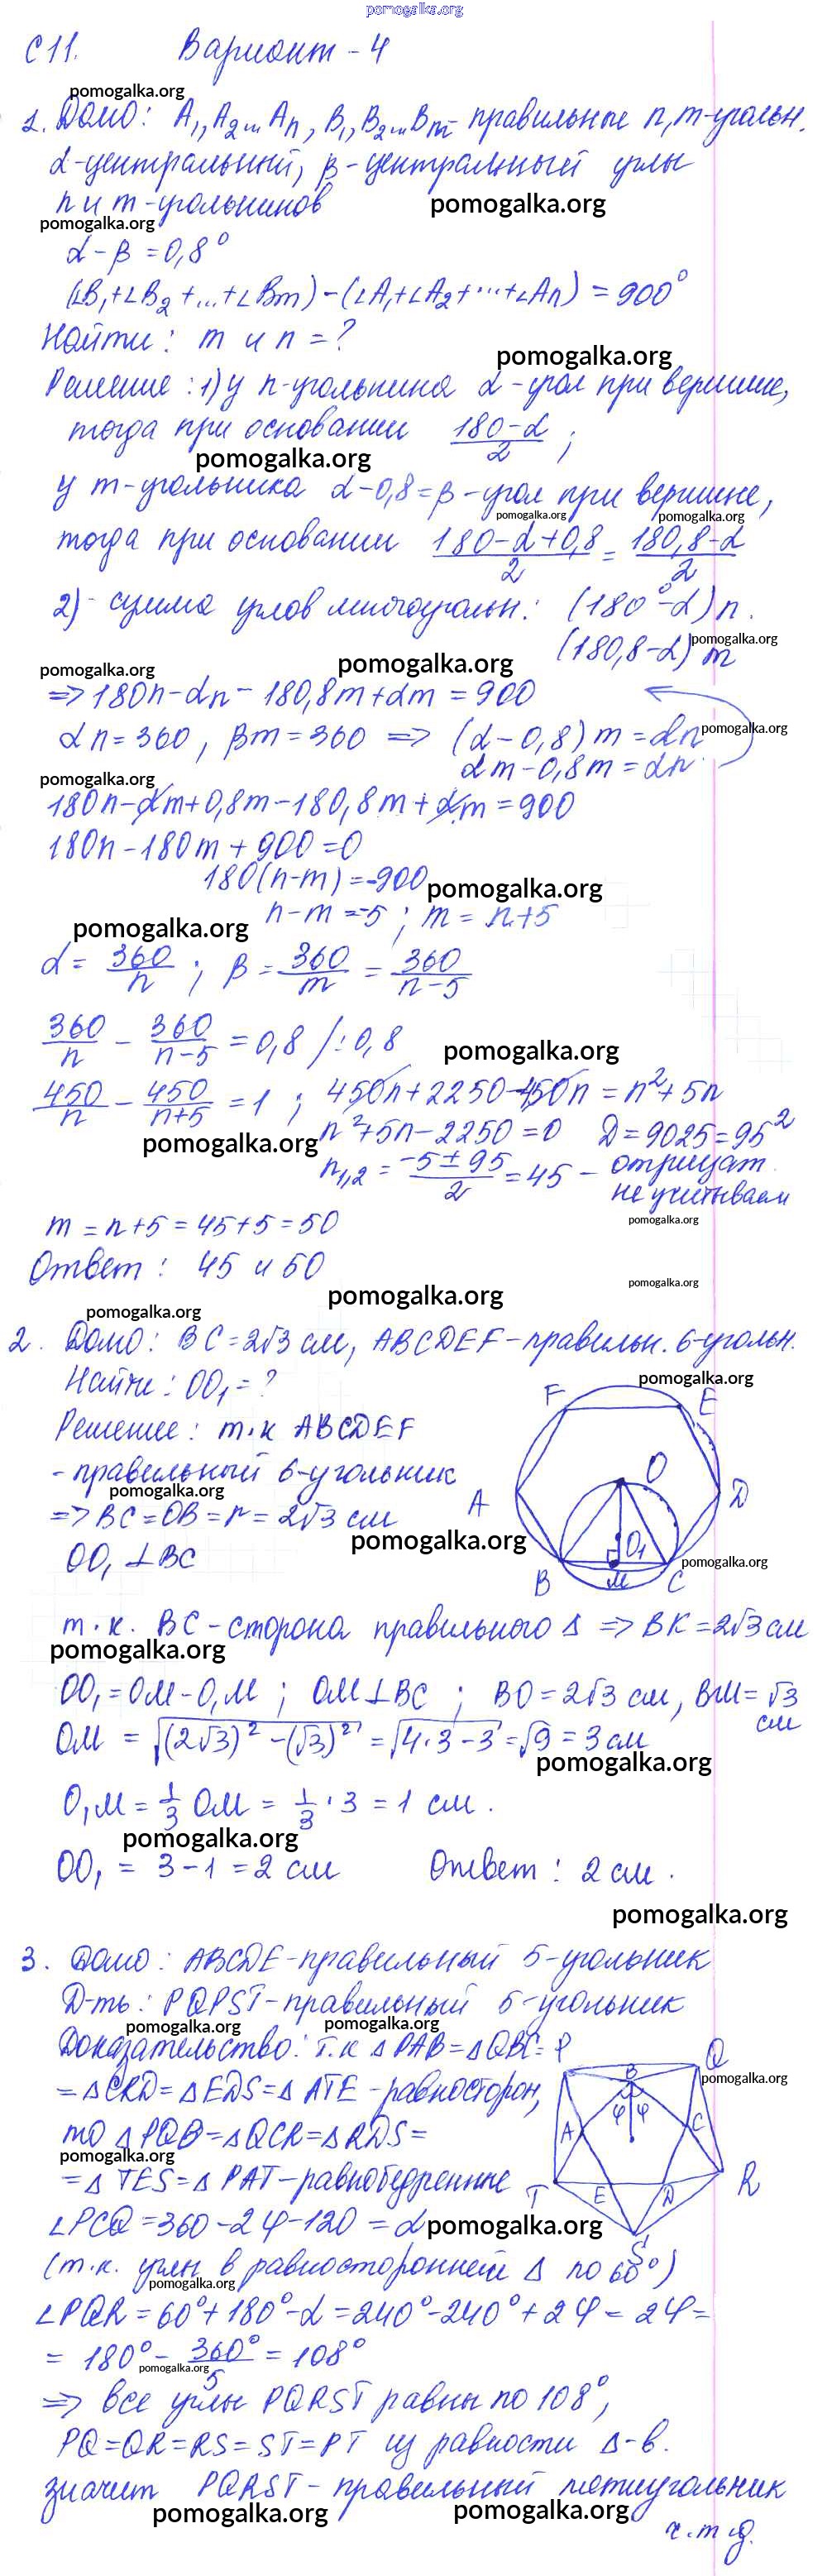 pomogalka.org
С 11. Вариант - 4
pomogalka.org
1. Дано: A₁, A₂...Aₙ, B₁, B₂...Bm - правильные n, m-угольн.
α-центральный, β-центральный углы
n и m-угольников
pomogalka.org
pomogalka.org
α - β = 0,8°
(∠B₁+∠B₂+...+∠Bm) - (∠A₁+∠A₂+...+∠An) = 900°
Найти: m и n = ?
pomogalka.org
Решение: 1) у n-угольника α - угол при вершине,
тогда при основании (180-α)/2 ;
pomogalka.org
у m-угольника α-0,8=β - угол при вершине,
pomogalka.org pomogalka.org
тогда при основании (180-α+0,8)/2 = (180,8-α)/2
2) - сумма углов многоугольн.: (180°-α)n.
(180,8-α)m
pomogalka.org
pomogalka.org pomogalka.org
=> 180n-αn - 180,8m+αm = 900
αn=360, βm=360 => (α-0,8)m = αn
pomogalka.org
αm-0,8m=αn
pomogalka.org
180n-αm+0,8m-180,8m+αm = 900
180n-180m + 900 = 0
180(n-m) = -900
pomogalka.org
n-m = -5 ; m = n+5
pomogalka.org
α = 360/n ; β = 360/m = 360/(n-5)
360/n - 360/(n-5) = 0,8 /:0,8
pomogalka.org
450/n - 450/(n+5) = 1 ; 450n+2250-450n = n²+5n
pomogalka.org
n²+5n-2250=0 D=9025=95²
n₁,₂ = (-5±95)/2 = 45 - отрицат.
не учитываем
pomogalka.org
m = n+5 = 45+5 = 50
Ответ: 45 и 50
pomogalka.org
pomogalka.org
pomogalka.org
2. Дано: BC=2√3 см, ABCDEF-правильн. 6-угольн.
Найти: OO₁=?
pomogalka.org
Решение: т.к ABCDEF
- правильный 6-угольник
pomogalka.org
=> BC=OB=r=2√3 см
pomogalka.org
OO₁ ⊥ BC
F E
A O D
O₁
B M C
pomogalka.org
т.к. BC-сторона правильного Δ => BK=2√3 см
pomogalka.org
OO₁=OM-O₁M ; OM⊥BC ; BO=2√3 см, BM=√3
см
OM = √((2√3)²-(√3)²) = √(4·3-3) = √9 = 3 см
pomogalka.org
O₁M = 1/3 OM = 1/3·3 = 1 см.
pomogalka.org
OO₁ = 3-1 = 2 см Ответ: 2 см.
pomogalka.org
3. Дано: ABCDE-правильный 5-угольник
Д-ть: PQPST-правильный 5-угольник
pomogalka.org pomogalka.org
Доказательство: т.к ΔPAB=ΔQBC=
= ΔCRD=ΔEDS=ΔATE - равносторон,
pomogalka.org
то ΔPQB=ΔQCR=ΔRDS=
pomogalka.org
= ΔTES=ΔPAT-равнобедренные
P B Q
A φ φ C
T E D R
S
∠PCQ=360-2φ-120 = α
pomogalka.org
(т.к. углы в равностороннем Δ по 60°)
pomogalka.org
∠PQR = 60°+180°-α = 240°-240°+2φ = 2φ=
= 180° - 360°/5 = 108°
pomogalka.org
=> все углы PQRST равны по 108°,
PQ=QR=RS=ST=PT из равности Δ-в.
значит PQRST-правильный пятиугольник
pomogalka.org pomogalka.org
ч.т.д.